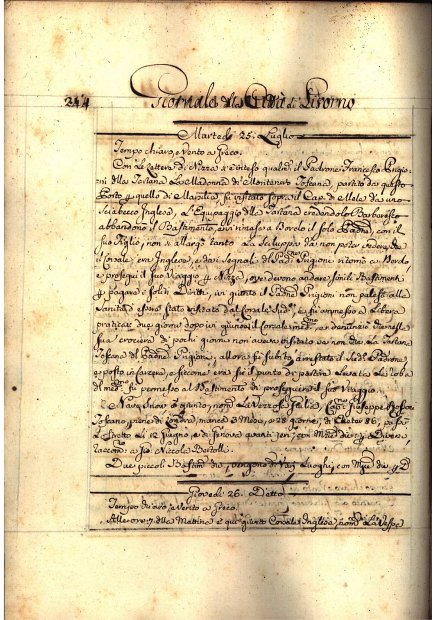 244 Giornale della Città di Livorno
Martedì 25. Luglio
Tempo chiaro, e Vento a Greco.
Con Le Lettere di Nizza è inteso qualm. il Padrone Francesco Prigio
ni della Tartana La Madonna di Montenero Toscana, partito da questo
Porto p quello di Marsilia, fu visitato sopra il Cap. di Mele da uno
Sciabecco Inglese, L'Equipaggio della Tartana credendolo Barbaresco
abbandonò il Bastimento, e vi rimase a Bordo il solo Padne, con il
suo Figlio, non si allargò tanto La Scialuppa da non poter vedere, che
il Corsale era Inglese, e dai Segnali del Padn. Prigioni ritornò a Bordo,
e proseguì il suo Viaggio p Nizza, ove devono andare simili Bastimenti
p pagare i soliti Diritti, in questo il Padne Prigioni non palesò alla
Sanità d'essere stato visitato dal Corsale Sudo, e fu ammesso a Libera
pratica: due giorni dopo vi giunse il Corsale med. 
sua crociera di pochi giorni non aveva visitato va non che La Tartana
Toscana del Padrone Prigioni, allora fu subito arrestato il Sud. Padrone
e posto in carcere, e siccome era sul punto di partire
del med. fu permesso al Bastimento di proseguire il suo Viaggio.
Nave Snow è giunto, nom. La Verzose Italia, Cap. Giuseppe
Toscano, viene di Londra, manca 3 Mesi, e 28 giorni, di Exeter 86, passò
Lo Stretto Li 12 Giugno, e di Livorno quarti ieri, con Mzie div. p Diversi,
raccom. a Gio. Niccola Bertolli.
Due piccoli Bastim. div. vengono di Varj Luoghi, con Mzie div. p D
Giovedì 26. Detto
Tempo chiaro, e Vento a Greco.
Alle ore 7. della Mattina è qui giunto Corsale Inglese, nom. La Vespe